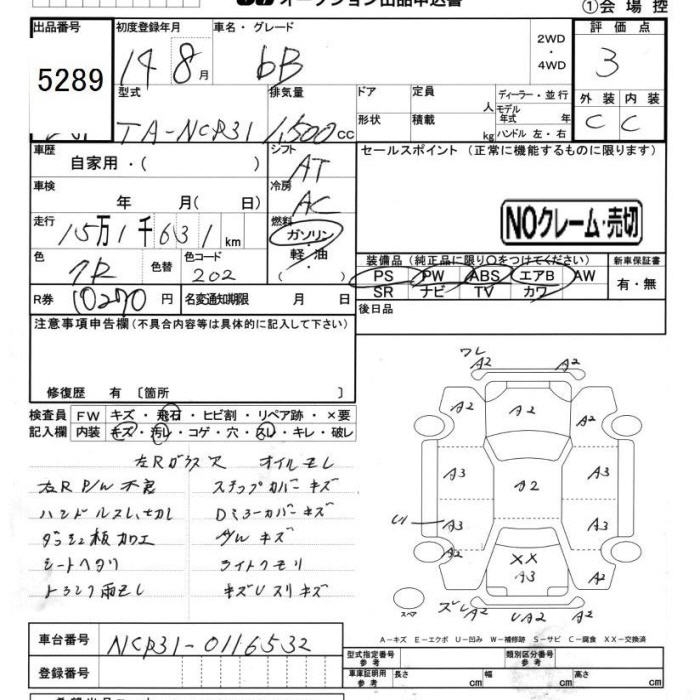 オークション出品申込書
①会場控
出品番号 初度登録年月 車名・グレード 評価点
5289 14年8月 bB 2WD・4WD 3
型式 排気量 ドア 定員 人 ディーラー・並行 外装 内装
TA-NCP31 1,500cc 形状 積載 kg モデル年式 年 ハンドル 左・右 C C
車歴 シフト セールスポイント (正常に機能するものに限ります)
自家用・( ) AT
車検 冷房
年 月( 日) AC
走行 燃料 NOクレーム・売切
15万1千631km ガソリン・軽油・( )
色 色替 色コード 装備品(純正品に限り○をつけてください) 新車保証書
202 PS PW ABS エアB AW 有・無
SR ナビ TV カワ
R券 10270円 名変通知期限 月 日 後日品
注意事項申告欄(不具合内容等は具体的に記入して下さい)
修復歴 有 〔箇所 〕
検査員 FW キズ・飛石・ヒビ割・リペア跡・×要
記入欄 内装 キズ・汚レ・コゲ・穴・スレ・キレ・破レ
左Rガラス オイルモレ
右R P/W 不良 ステップカバーキズ
ハンドルスレ、
ダッシュ板加工 キズ
シートヘタリ ライトクモリ
トランク雨モレ キズUスリキズ
ワレ
A2 A2
A2 A2 A2
A3 A2 A3
U1 A3 A3
A2 XX A3 A2
スペア ズレ A2 UA2 A2
A-キズ E-エクボ U-凹み W-補修跡 S-サビ C-腐食 XX-交換済
車台番号 NCP31-0116532
登録番号
型式指定番号 参考 類別区分番号 参考
車庫証明用 参考 長さ cm 幅 cm 高さ cm